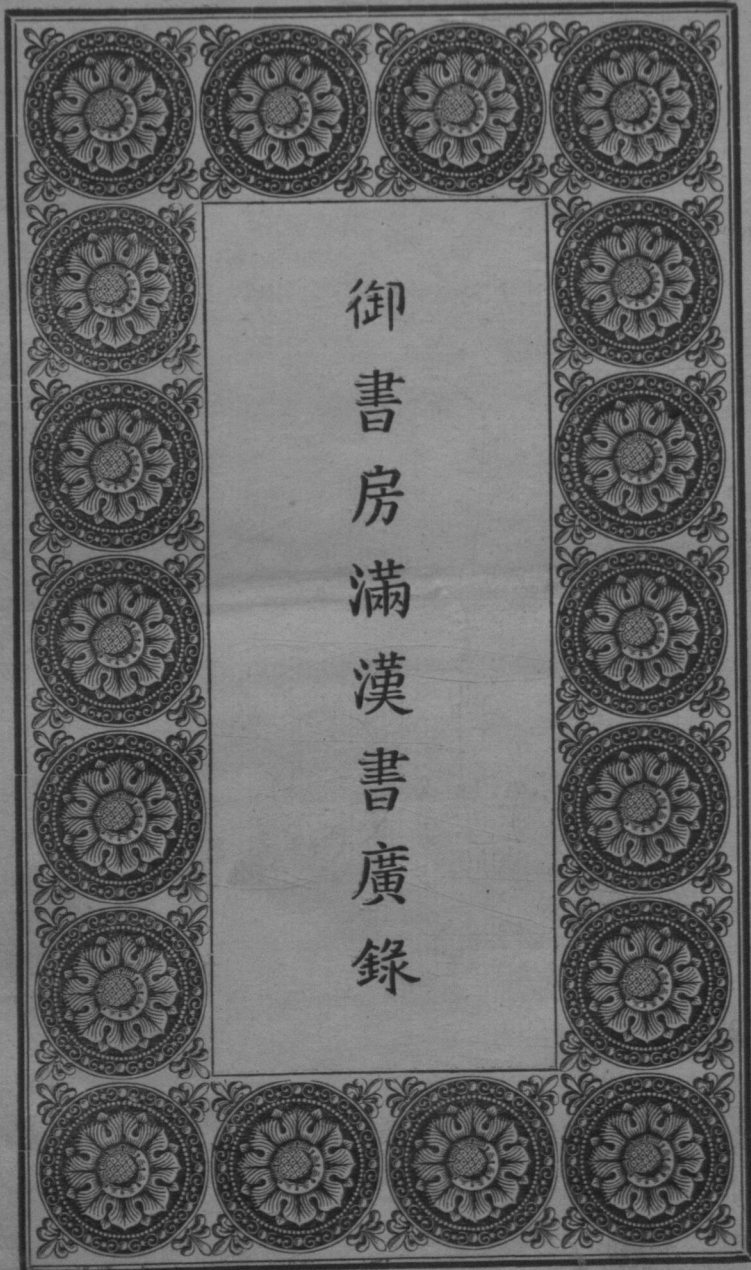 御書房滿漢書廣錄